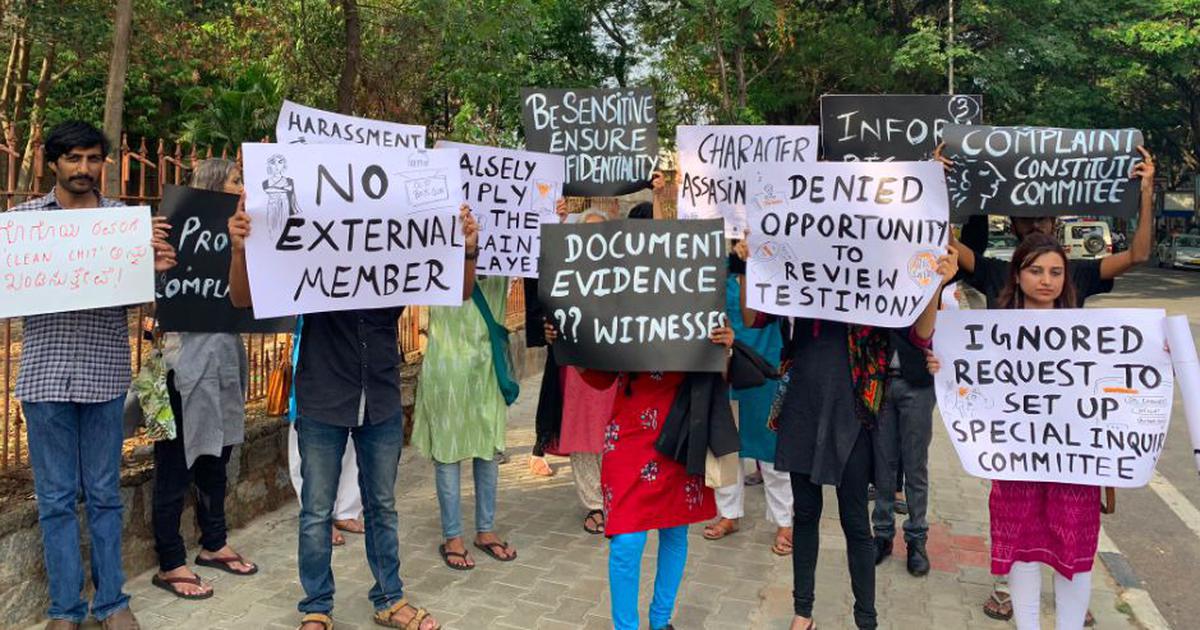 'CLEAN CHIT' ಅನ್ನು
ಖಂಡಿಸುತ್ತೇವೆ!
PRO
COMPL
HARASSMENT
NO
EXTERNAL
MEMBER
ALSELY
MPLY
THE
LAINT
LAYE
BE SENSITIVE
ENSURE
FIDENTIALITY
DOCUMENT
EVIDENCE
?? WITNESSES
CHARACTER
ASSASIN
DENIED
OPPORTUNITY
TO
REVIEW
TESTIMONY
3
INFOR
COMPLAINT
CONSTITUTE
COMMITEE
IGNORED
REQUEST TO
SET UP
SPECIAL INQUIR
COMMITTEE